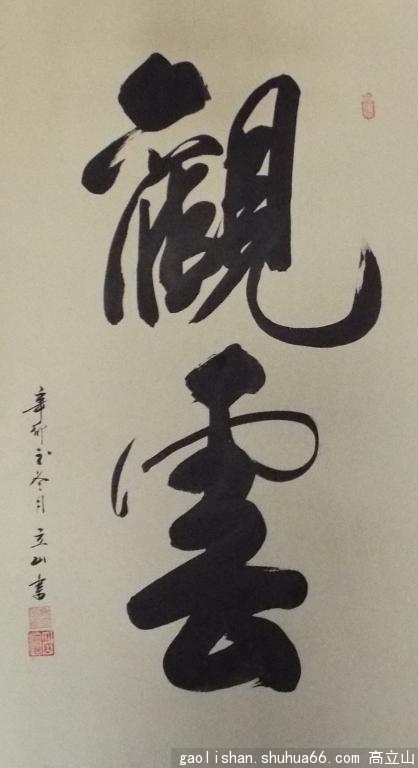 觀雲
辛卯之冬月立山書
gaolishan.shuhua66.com 高立山